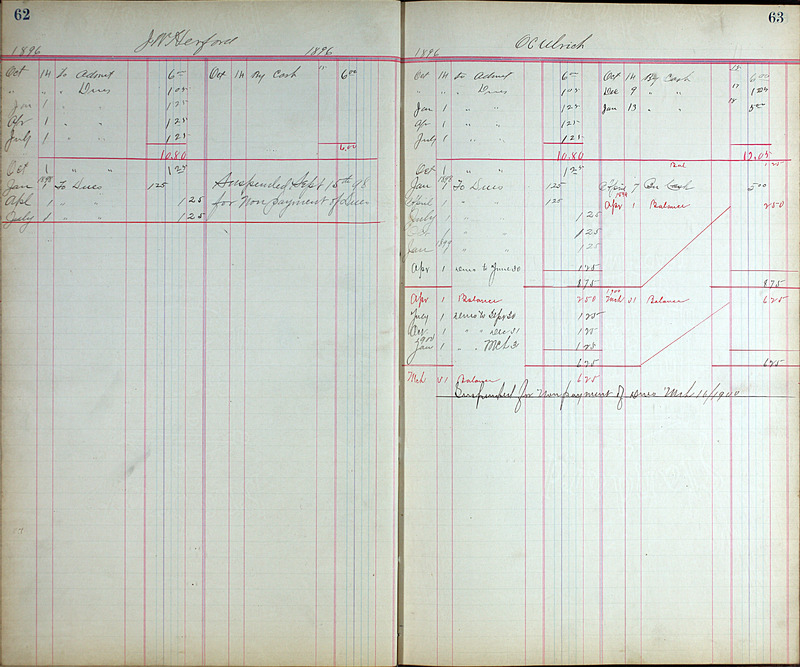 62
J. W. Herford
1896 1896
Oct 14 To Admit 6 00 Oct 14 By Cash 15 6 00
" " " Dues 1 05
Jan 1 " " 1 25
Apr 1 " " 1 25
July 1 " " 1 25
6.00
10.80
Oct 1 " " 1 25
Jan 1898 1 To Dues 1 25 Suspended Sept 15th 98
Apl 1 " " 1 25 for Non payment of Dues
July 1 " " 1 25
63
O C Ulrich
1896
Oct 14 to Admit 6 00 Oct 14 By Cash 15 6 00
" " " Dues 1 05 Dec 9 " " 17 1 05
Jan 1 " " 1 25 Jan 13 " " 18 5 00
Apr 1 " " 1 25
July 1 " " 1 25
10.80 12.05
Oct 1 " " 1 25 Bal 1 25
Jan 1898 1 To Dues 1 25 April 7 By Cash 5 00
April 1 " " 1 25 Apr 1899 1 Balance 2 50
July 1 " " 1 25
Oct 1 " " 1 25
Jan 1899 " " 1 25
Apr 1 " to June 30 1 25
8 75 8 75
Apr 1 Balance 2 50 1900 Mch 31 Balance 6 25
July 1 " to Sept 30 1 25
1 " " Dec 31 1 25
1900 Jan 1 " " Mch 3 1 25
6 25 6 25
Mch 31 Balance 6 25
Suspended for Non payment of dues Mch 16/1900